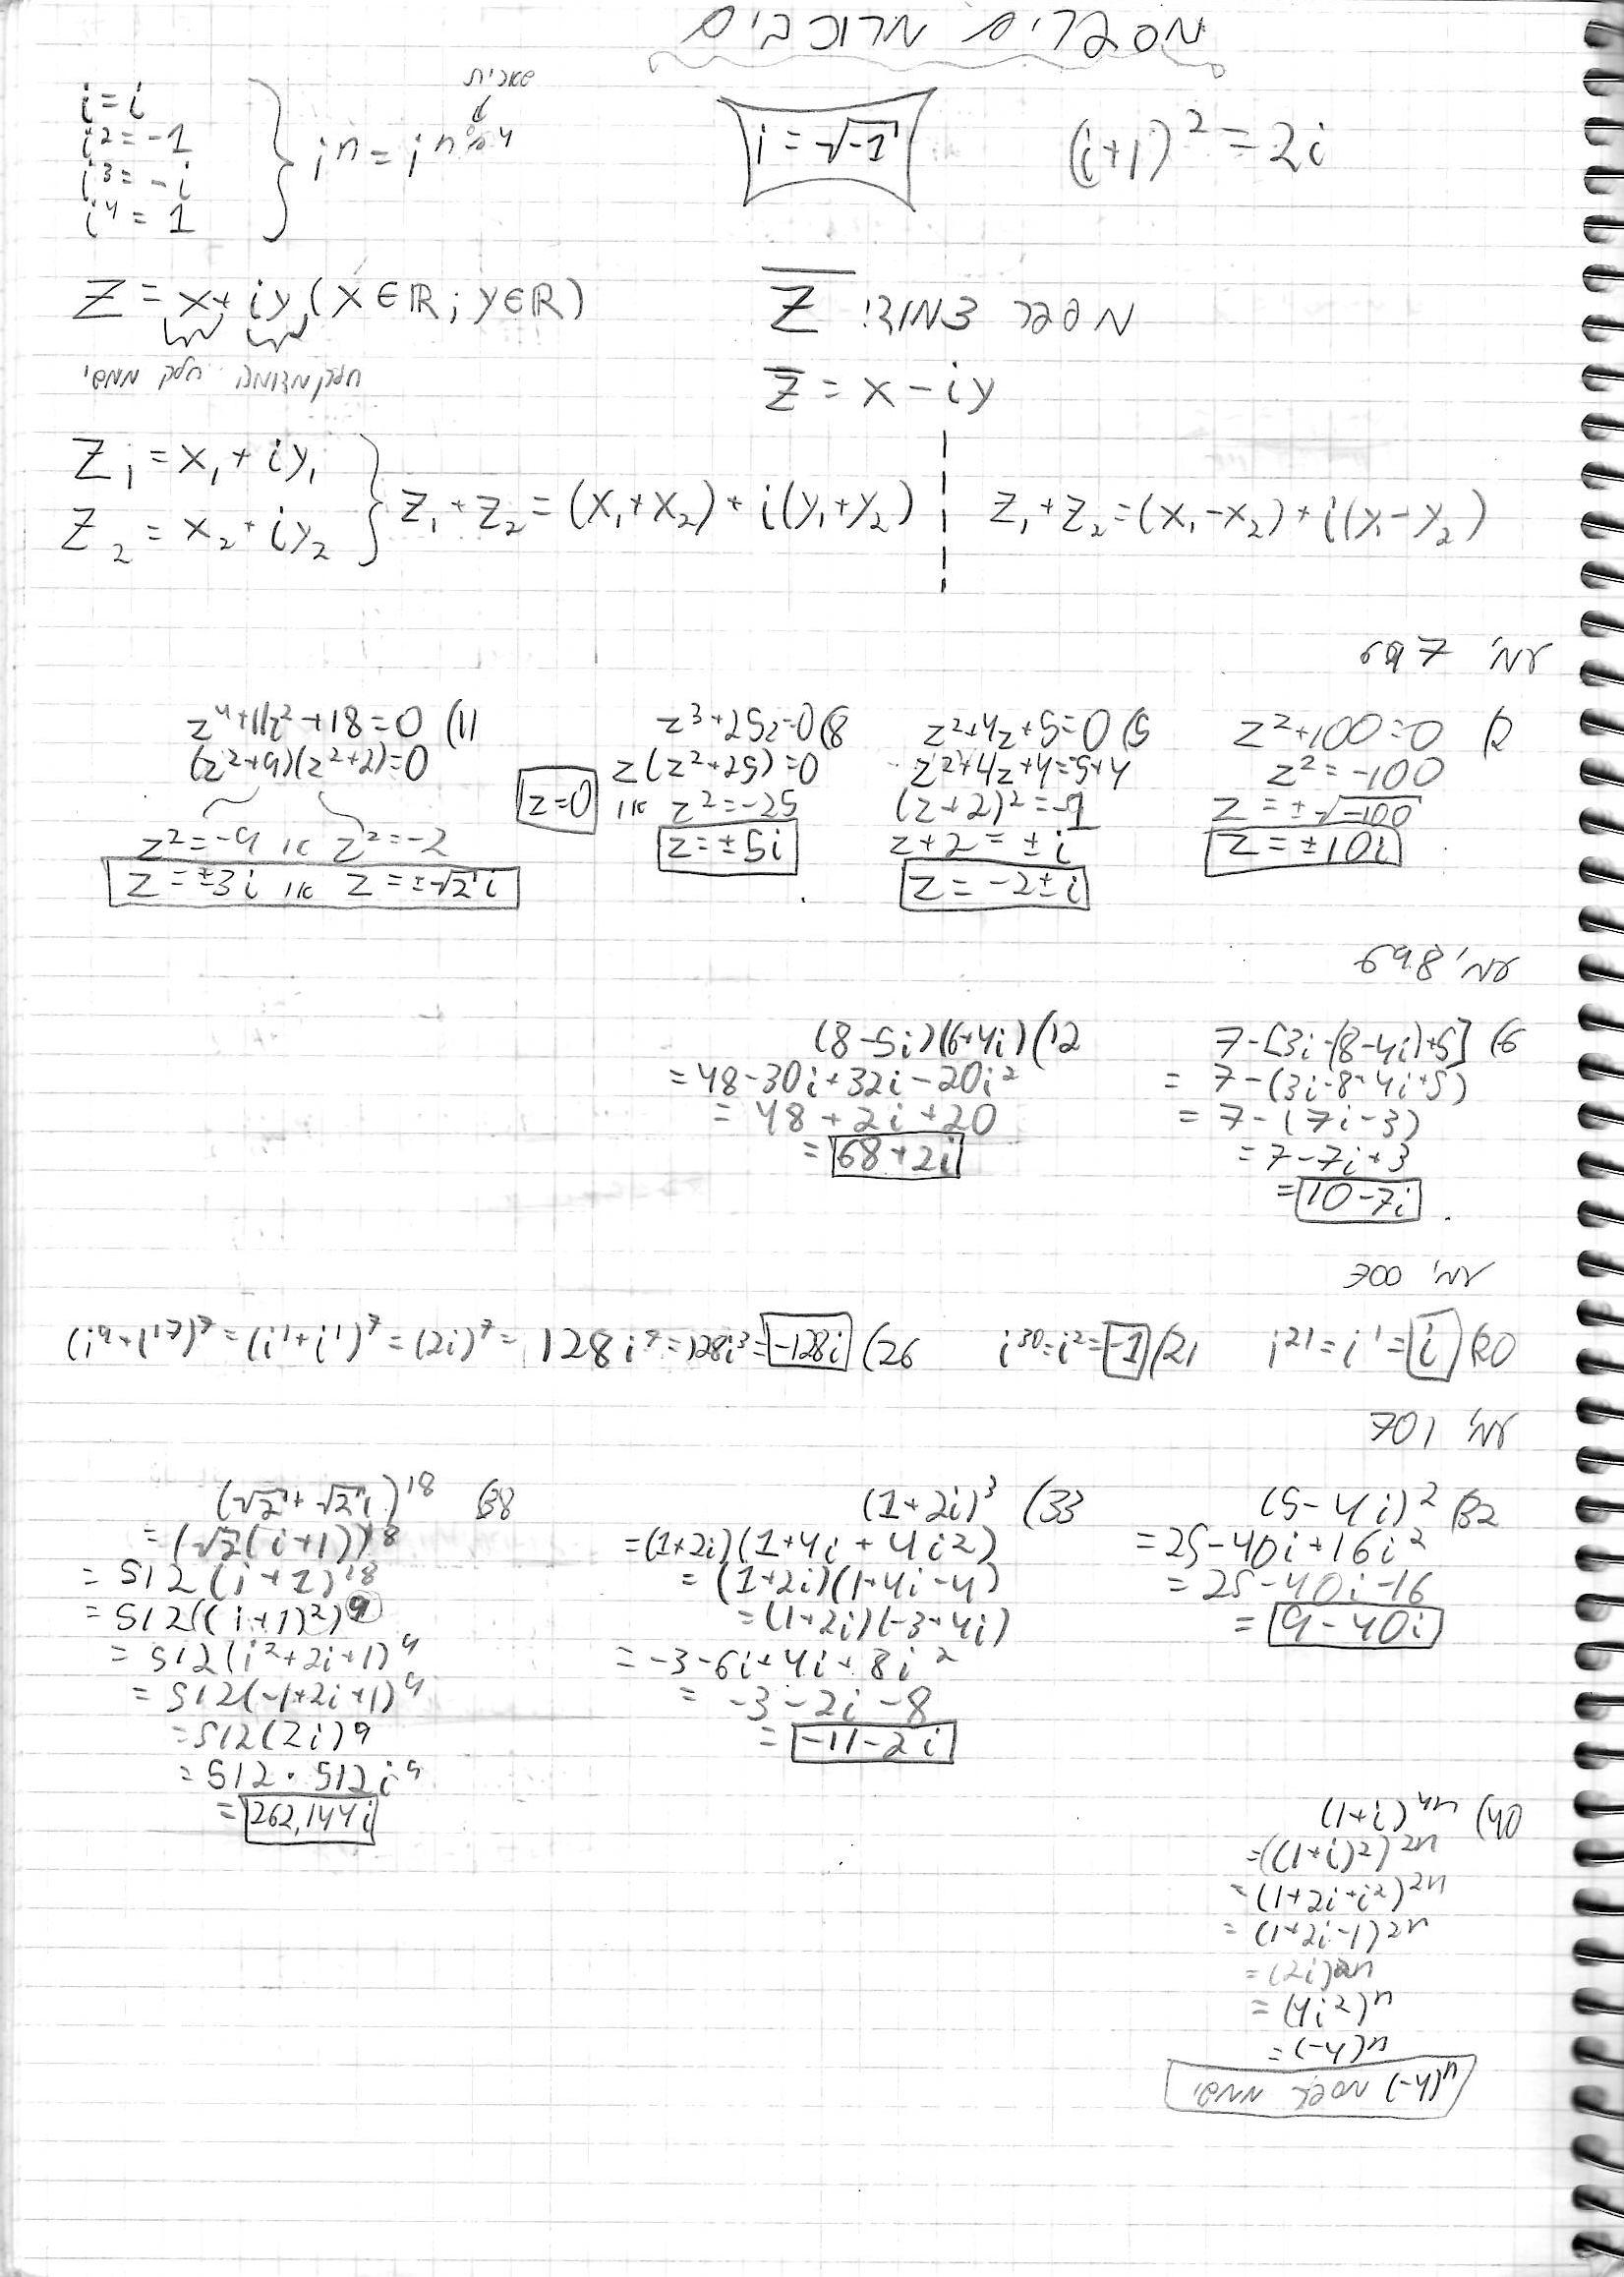 מספרים מרוכבים
i=i
i²=-1
i³=-i
i⁴=1
שארית
iⁿ=i^(n%4)
i=√-1
(i+1)²=2i
Z=x+iy (x∈ℝ; y∈ℝ)
חלק ממשי חלק מדומה
מספר צמוד: Z̅
Z̅=x-iy
Z₁=x₁+iy₁
Z₂=x₂+iy₂
Z₁+Z₂=(x₁+x₂)+i(y₁+y₂)
Z₁+Z₂=(x₁-x₂)+i(y₁-y₂)
עמ' 697
2) z²+100=0
z²=-100
z=±√-100
z=±10i
5) z²+4z+5=0
z²+4z+4=-5+4
(z+2)²=-1
z+2=±i
z=-2±i
8) z³+25z=0
z(z²+25)=0
z=0 או z²=-25
z=±5i
11) z⁴+11z²+18=0
(z²+9)(z²+2)=0
z²=-9 או z²=-2
z=±3i או z=±√2i
עמ' 698
6) 7-[3i-(8-4i)+5]
=7-(3i-8+4i+5)
=7-(7i-3)
=7-7i+3
=10-7i
12) (8-5i)(6+4i)
=48-30i+32i-20i²
=48+2i+20
=68+2i
עמ' 700
20) i²¹=i¹=i
21) i³⁰=i²=-1
26) (i⁹+i¹⁷)⁷=(i¹+i¹)⁷=(2i)⁷=128i⁷=128i³=-128i
עמ' 701
32) (5-4i)²
=25-40i+16i²
=25-40i-16
=9-40i
33) (1+2i)³
=(1+2i)(1+4i+4i²)
=(1+2i)(1+4i-4)
=(1+2i)(-3+4i)
=-3-6i+4i+8i²
=-3-2i-8
=-11-2i
38) (√2+√2i)¹⁸
=(√2(i+1))¹⁸
=512(i+1)¹⁸
=512((i+1)²)⁹
=512(i²+2i+1)⁹
=512(-1+2i+1)⁹
=512(2i)⁹
=512·512i⁹
=262,144i
40) (1+i)⁴ⁿ
=((1+i)²)²ⁿ
=(1+2i+i²)²ⁿ
=(1+2i-1)²ⁿ
=(2i)²ⁿ
=(4i²)ⁿ
=(-4)ⁿ
(-4)ⁿ מספר ממשי